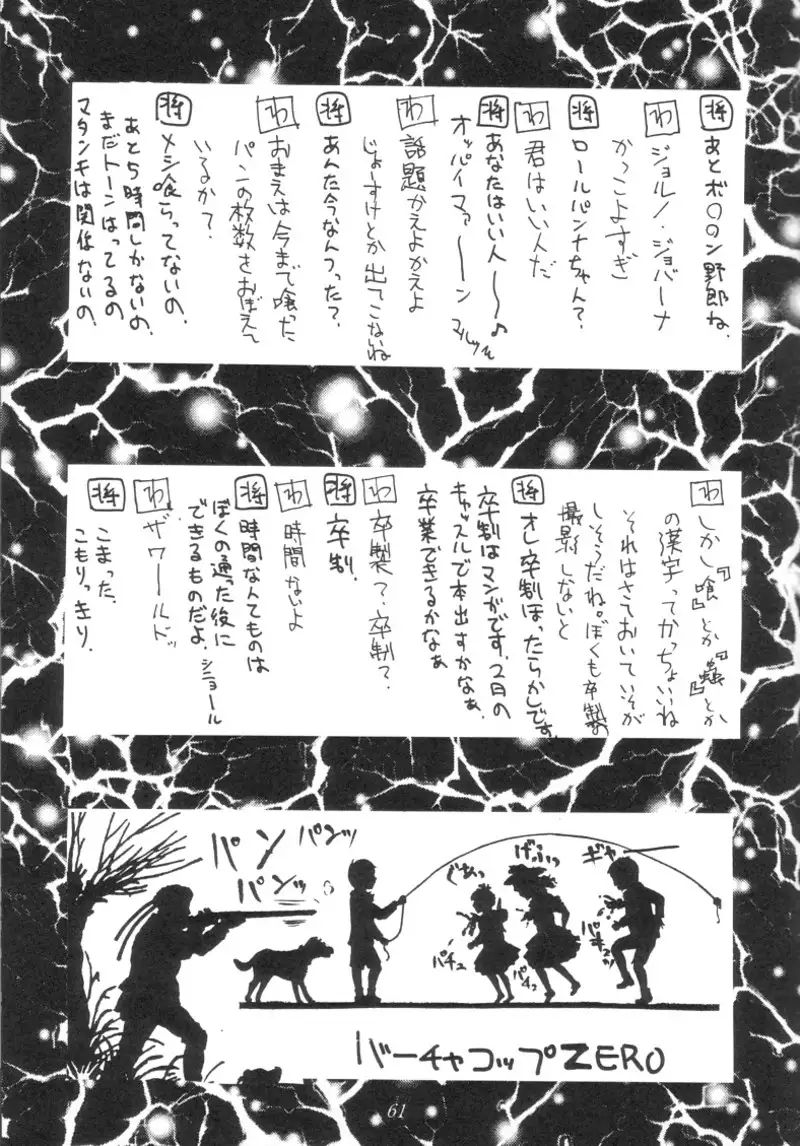 将 あとボ〇〇ン野郎ね。
わ ジョルノ・ジョバーナ
かっこよすぎ
将 ロールパンナちゃん?
わ 君はいい人だ
将 あなたはいい人〜〜♪
オッパイマァ〜〜ン
わ 話題かえよかえよ
じょーすけとか出てこないね
将 あんた今なんつった?
わ おまえは今まで喰った
パンの枚数をおぼえて
いるか?
将 メシ喰らってないの。
あと5時間しかないの。
まだトーンはってるの
マタンキは関係ないの。
わ しかし『喰』とか『蟲』とか
の漢字ってかっちょいいね
それはさておいていそが
しそうだね。ぼくも卒製の
撮影しないと
将 オレ卒制ほったらかしです。
卒制はマンガです。2日の
キャッスルで本出すかなぁ。
卒業できるかなぁ
わ 卒製?卒制?
将 卒制。
わ 時間ないよ
将 時間なんてものは
ぼくの通った後に
できるものだよ。シニョール
わ ザ・ワールドッ
将 こまった。
こもりっきり。
パン パンッ
パンッ
ぐあっ げふっ ギャー
パチュ パチュ パキュッ
バーチャコップZERO
61